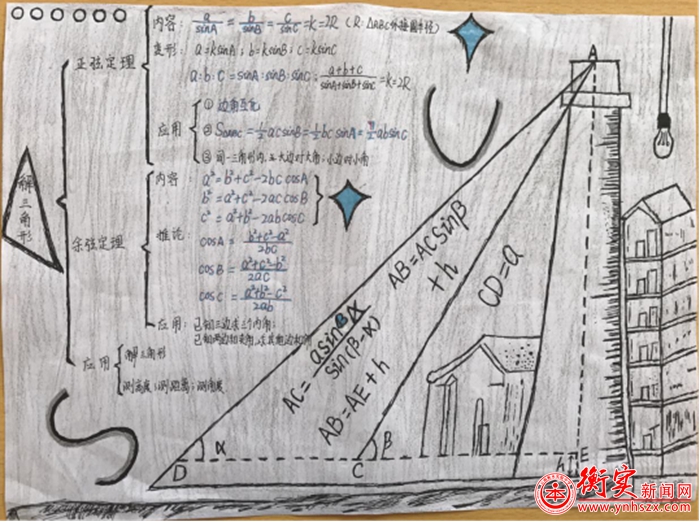 解三角形
正弦定理
内容: a/sinA = b/sinB = c/sinC = k = 2R (R:△ABC外接圆半径)
变形: a=ksinA; b=ksinB; c=ksinC
a:b:c=sinA:sinB:sinC; a+b+c/sinA+sinB+sinC = k = 2R
应用
① 边角互化
② S△ABC = ½acsinB = ½bcsinA = ½absinC
③ 同一三角形内, 大边对大角; 小边对小角
余弦定理
内容: a²=b²+c²-2bccosA
b²=a²+c²-2accosB
c²=a²+b²-2abcosC
推论: cosA = b²+c²-a²/2bc
cosB = a²+c²-b²/2ac
cosC = a²+b²-c²/2ab
应用: 已知三边求三个内角;
已知两边和夹角,
应用
解三角形
测高度; 测距离; 测角度
A
AB=ACsinβ
+h
CD=a
AC= asinα/sin(β-α)
AB=AE+h
α
β
D
C
E
h
衡实新闻网
www.ynhszx.com